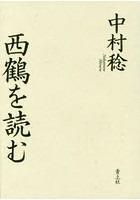 中村稔
西鶴を読む
青土社